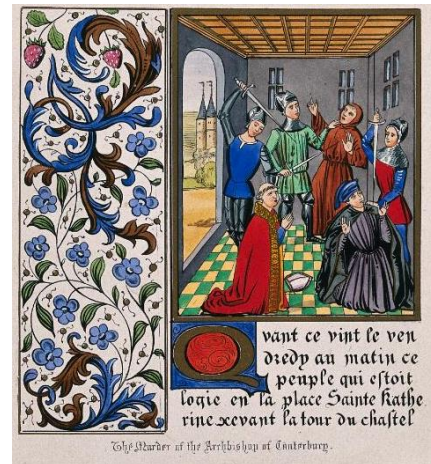 Quant ce vint le ven
dredy au matin ce
peuple qui estoit
logie en la place Sainte Kathe
rine devant la tour du chastel
The Murder of the Archbishop of Canterbury.